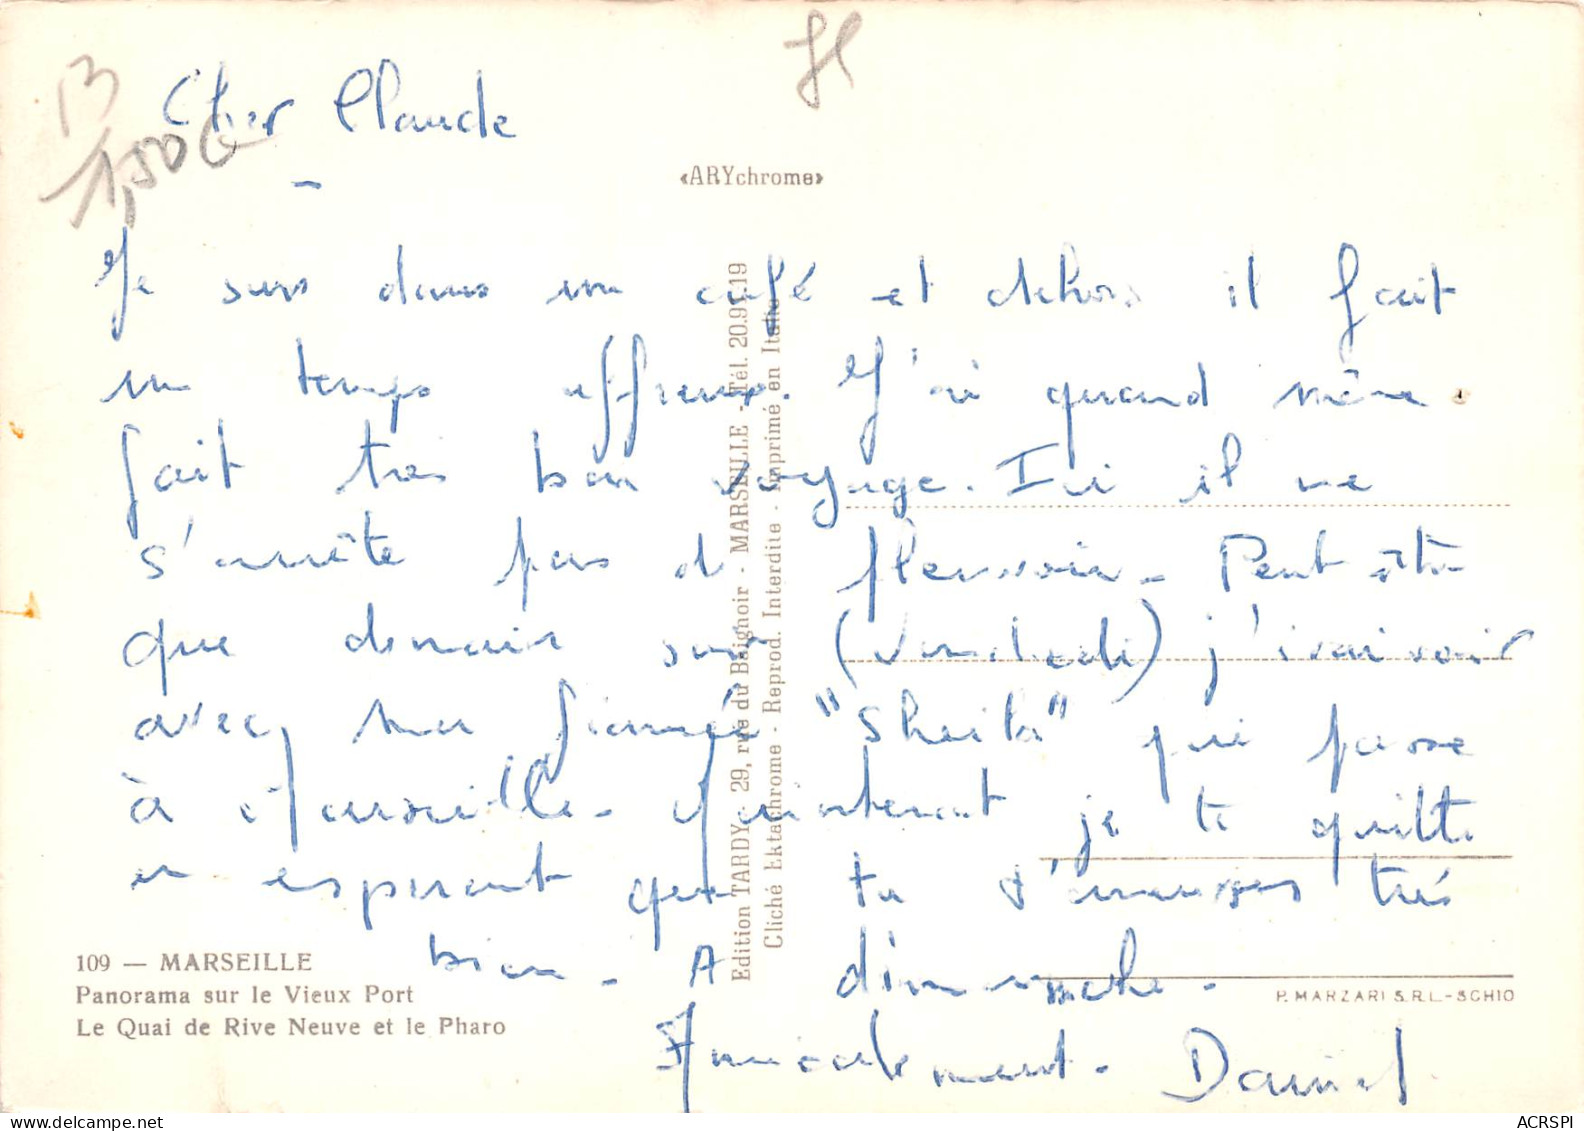 13
1,50€
Cher Claude
«ARYchrome»
Je suis dans un café et dehors il fait
un temps affreux. J'ai quand même
fait très bon voyage. Ici il ne
s'arrête pas de pleuvoir. Peut être
que demain soir (Vendredi) j'irai voir
avec ma fiancée "Sheila" qui passe
à Marseille. Maintenant je te quitte
en espérant que tu t'amuses très
bien. A dimanche.
Amicalement. Daniel
109 — MARSEILLE
Panorama sur le Vieux Port
Le Quai de Rive Neuve et le Pharo
Edition TARDY - 29, rue du Baignoir - MARSEILLE - Tél. 20.91.19
Cliché Ektachrome - Reprod. Interdite - Imprimé en Italie
P. MARZARI S.R.L.-SCHIO
ACRSPI